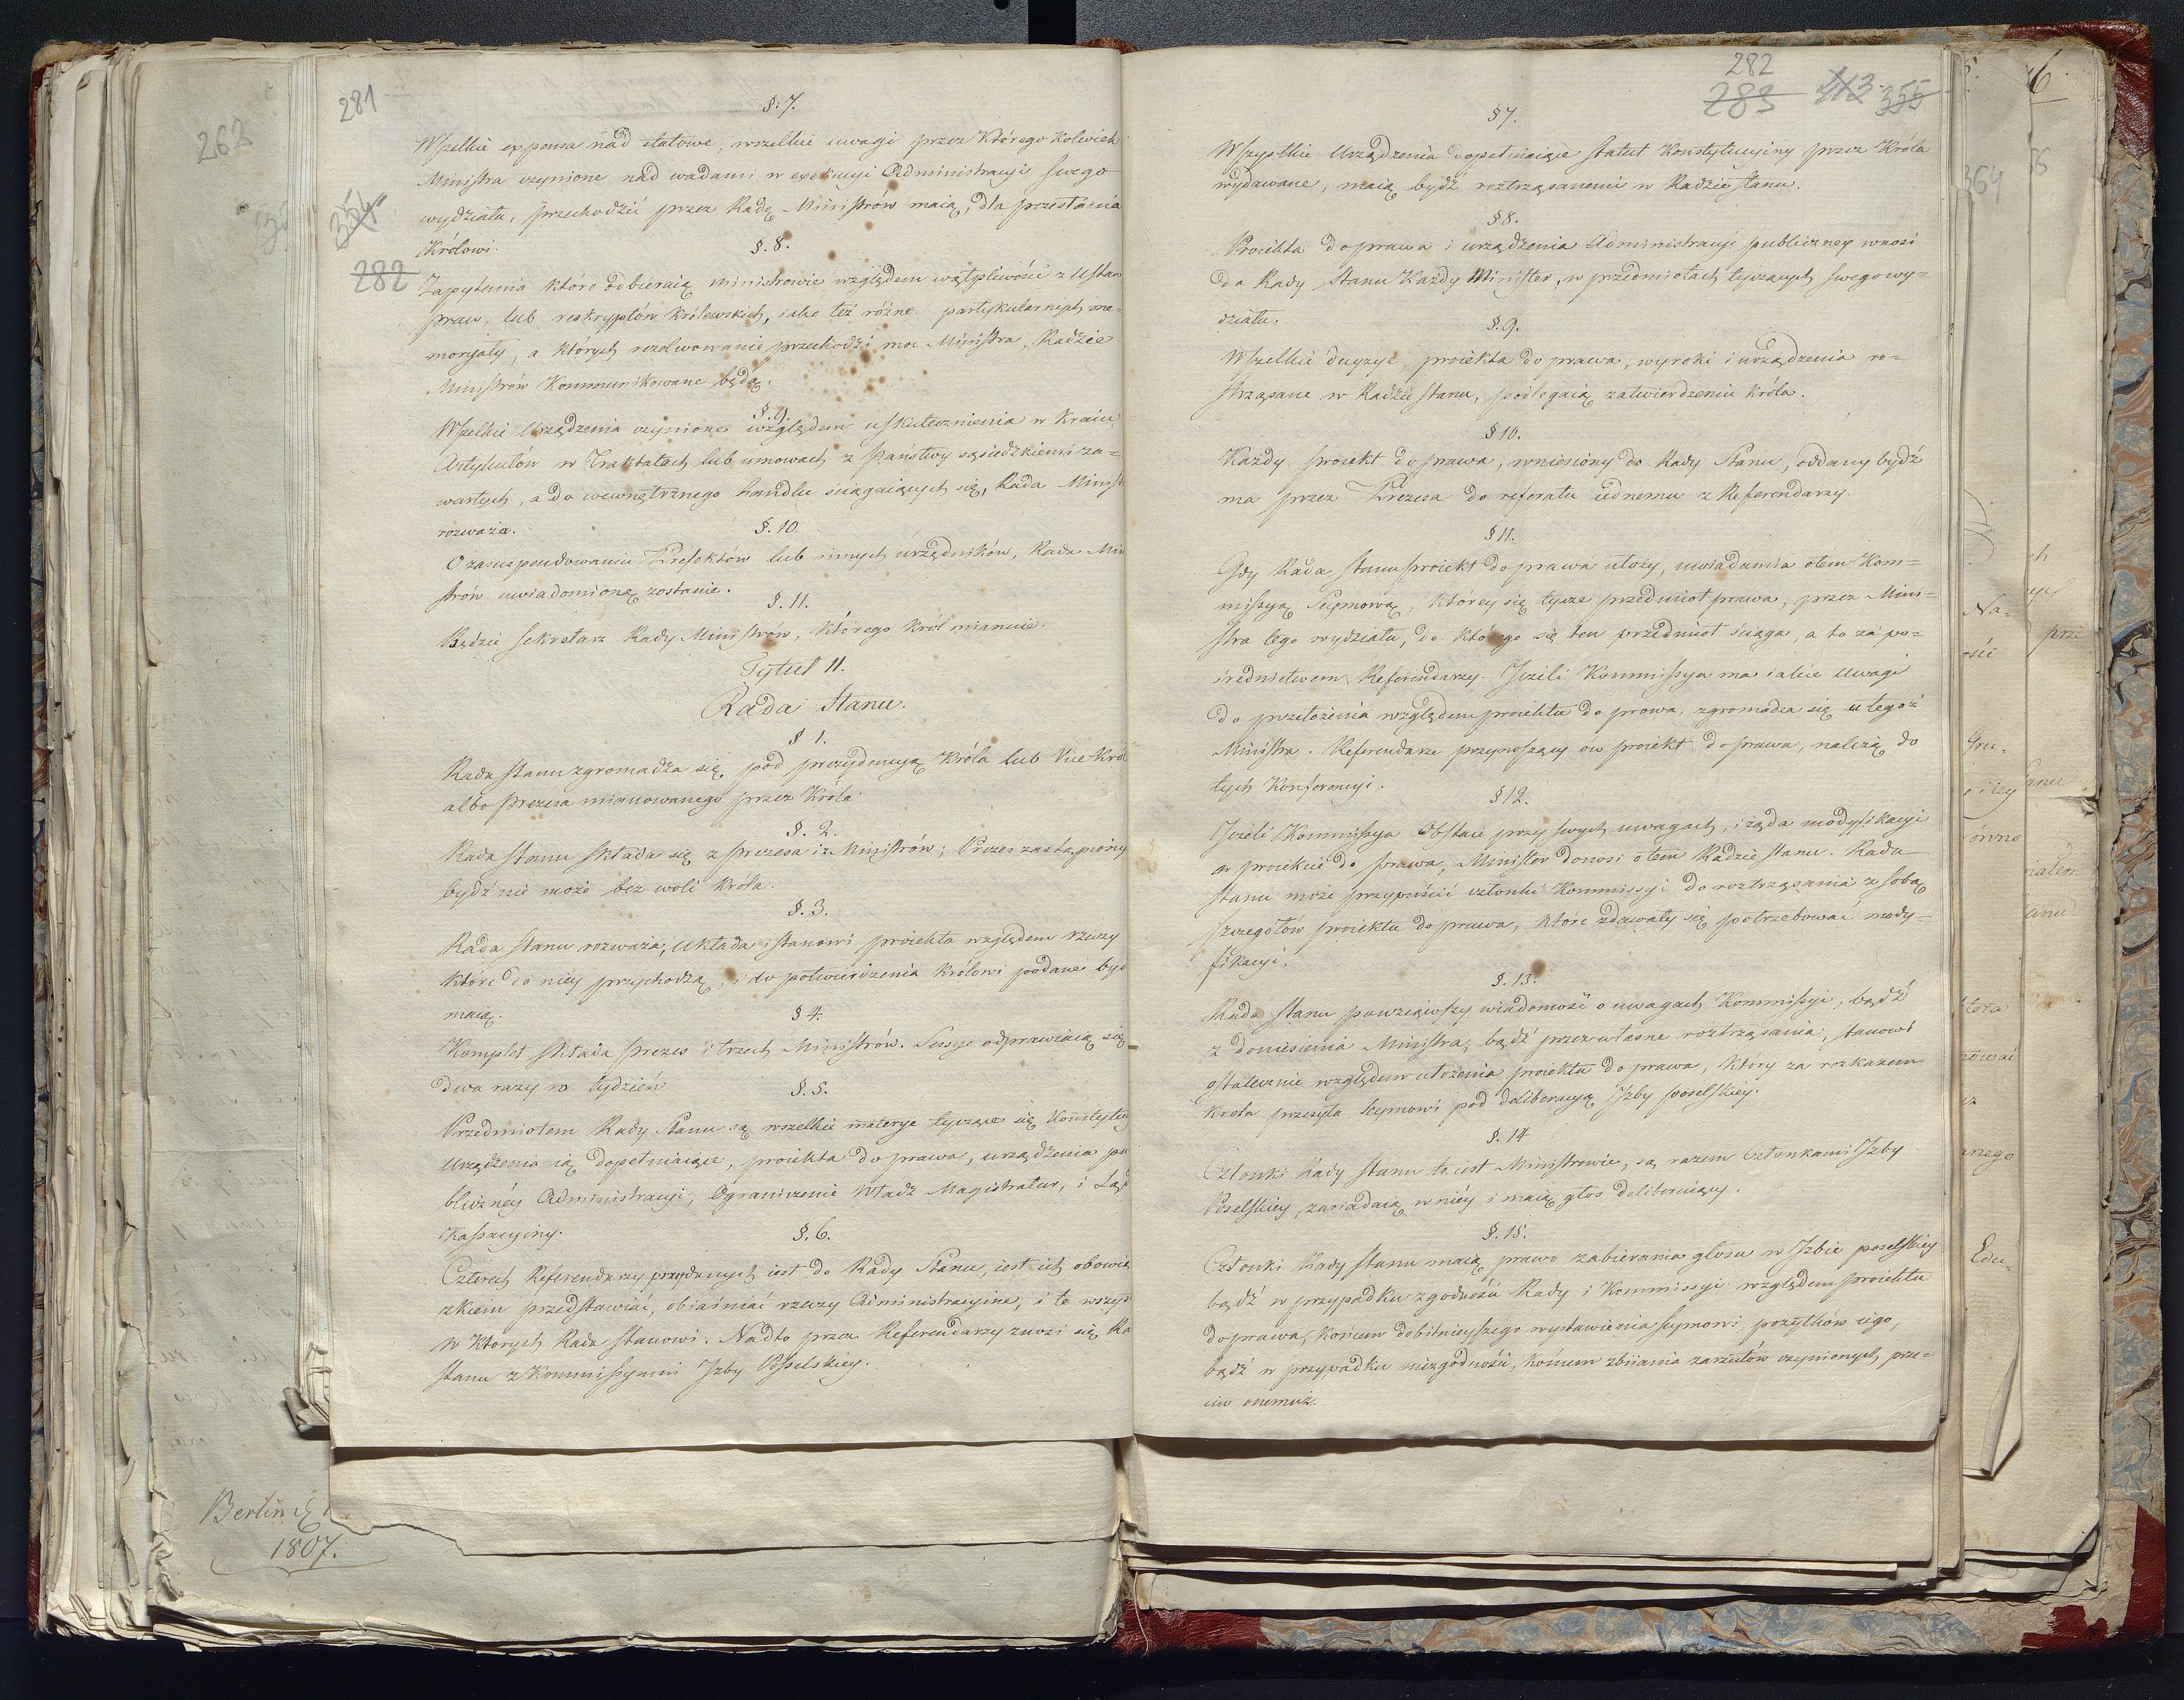 263
Berlin d
1807.
281
354
282
§. 7.
Wszelkie expensa nad etatowe, wszelkie uwagi przez Którego Kolwiek
Ministra czynione nad wadami w exekucyi Administracyi swego
wydziału, przechodzić przez Radę Ministrów maią, dla przesłania
Królowi.
§. 8.
Zapytania które odbieraią ministrowie względem wątpliwości z Ustaw
praw, lub reskryptów Królewskich, iako też różne partykularnych me-
moryały, a których rezolwowanie przechodzi moc Ministra, Radzie
Ministrów Kommunikowane będą.
§. 9.
Wszelkie Urządzenia czynione względem uskutecznienia w Kraiu
Artykułów w Traktatach lub umowach z Państwy sąsiedzkiemi za=
wartych, a do wewnętrznego handlu ściągaiących się, Rada Minist
rozważa.
§. 10.
O zasuspendowaniu Prefektów lub innych urzędników, Rada Min
strów uwiadomioną zostanie.
§. 11.
Będzie Sekretarz Rady Ministrów, którego Król mianuie.
Tytuł II.
Rada Stanu.
§ 1.
Rada Stanu zgromadza się pod prezydencyą Króla lub Vice Kró
albo Prezesa mianowanego przez Króla
§. 2.
Rada Stanu składa się z Prezesa i z Ministrów; Prezes zastąpiony
bydź nie może bez woli Króla.
§. 3.
Rada Stanu rozważa, układa i stanowi proiekta względem rzeczy
które do niey przychodzą, i do potwierdzenia Królowi podane byd
maią.
§ 4.
Komplet składa prezes i trzech Ministrów. Sessye odprawiaią się
dwa razy w tydzień
§. 5.
Przedmiotem Rady Stanu są wszelkie materye tyczące się Konstytuc
Urządzenia ią dopełniaiące, proiekta do prawa, urządzenia pu
bliczney Administracyi, Ograniczenie Władz Magistratur, i Sąd
Kassacyiny.
§. 6.
Czterech Referendarzy przydanych iest do Rady Stanu, iest ich obowią
zkiem przedstawiać, obiaśniać rzeczy Administracyine, i te wszys
w Ktorych Rada Stanowi. Nadto przez Referendarzy znosi się Ra
Stanu z Kommissyami Izby Poselskiey.
282
283 413 355
§ 7.
Wszystkie Urządzenia dopełniaiące statut Konstytucyiny przez Króla
wydawane, maią bydź roztrząsanemi w Radzie Stanu.
§ 8.
Proiekta do prawa i urządzenia Administracyi publiczney wnosi
do Rady Stanu Każdy Minister, w przedmiotach tyczących swego wy=
działu.
§. 9.
Wszelkie decyzye, proiekta do prawa, wyroki i urządzenia ro=
strząsane w Radzie Stanu, podlegaią zatwierdzeniu Króla.
§ 10.
Każdy proiekt do prawa, wniesiony do Rady Stanu, oddany bydź
ma przez Prezesa do referatu iednemu z Referendarzy.
§ 11.
Gdy Rada Stanu proiekt do prawa ułoży, uwiadamia o tem Kom=
missyą Seymową, którey się tycze przedmiot prawa, przez Mini=
stra tego wydziału, do którego się ten przedmiot ściąga, a to za po=
średnictwem Referendarzy. Jeżeli Kommissya ma iakie uwagi
do przełożenia względem proiektu do prawa, zgromadza się u tegoż
Ministra. Referendarze przynoszący ów proiekt do prawa, należą do
tych Konferencyi.
§ 12.
Jeżeli Kommissya Obstaie przy swych uwagach, i żąda modyfikacyi
w proiekcie do prawa, Minister donosi o tem Radzie Stanu. Rada
Stanu może przypuścić członki Kommissyi do roztrząsania z sobą
szczegółów proiektu do prawa, które zdawały się potrzebować mody=
fikacyi.
§. 13.
Rada Stanu powziąwszy wiadomość o uwagach Kommissyi, bądź
z doniesienia Ministra, bądź przez własne roztrząsania, stanowi
ostatecznie względem ułożenia proiektu do prawa, który za rozkazem
Krola przesyła Seymowi pod deliberacyą Izby poselskiey.
§. 14
Członki Rady Stanu to iest Ministrowie, są razem Członkami Izby
Poselskiey, zasiadaią w niéy i maią głos deliberuiący.
§. 15.
Członki Rady Stanu maią prawo zabierania głosu w Izbie poselskiey
bądź w przypadku zgodności Rady i Kommissyi względem proiektu
do prawa, końcem dobitnieyszego wystawienia seymowi pożytków iego,
bądź w przypadku niezgodności, końcem zbiiania zarzutów czynionych prze=
ciw onemuż.
364
Na=
Edu=